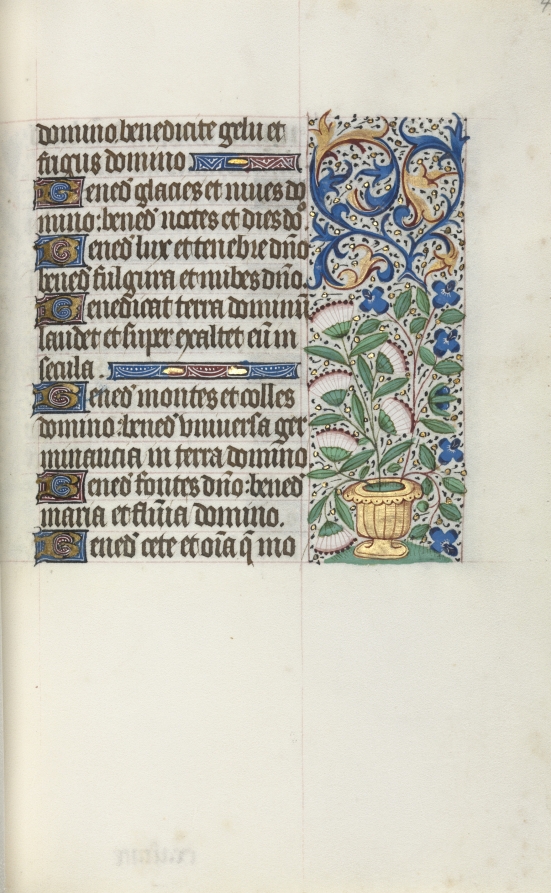 domino benedicite gelu et
frigus domino
Bened̄ glacies et niues do
mino: bened̄ noctes et dies do͞
Bened̄ lux et tenebre dn̄o
bened̄ fulgura et nubes dn̄o.
Benedicat terra dominū
laudet et super exaltet eū in
secula.
Bened̄ montes et colles
domino: bened̄ vniuersa ger
minancia in terra domino
Bened̄ fontes dn̄o: bened̄
maria et flūia domino.
Bened̄ cete et oīa q̄ mo